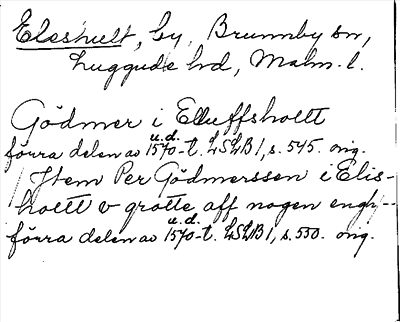 Eleshult, by, Brunnby sn,
Luggude hd, Malm. l.
Gödmer i Elluffsholtt
förra delen av 1570-t. LSLB 1, s. 545. orig.
u.d.
Jtem Per Gödmerssen i Elis-
holtt v grotte aff nogen engh--
u.d.
förra delen av 1570-t. LSLB 1, s. 550. orig.